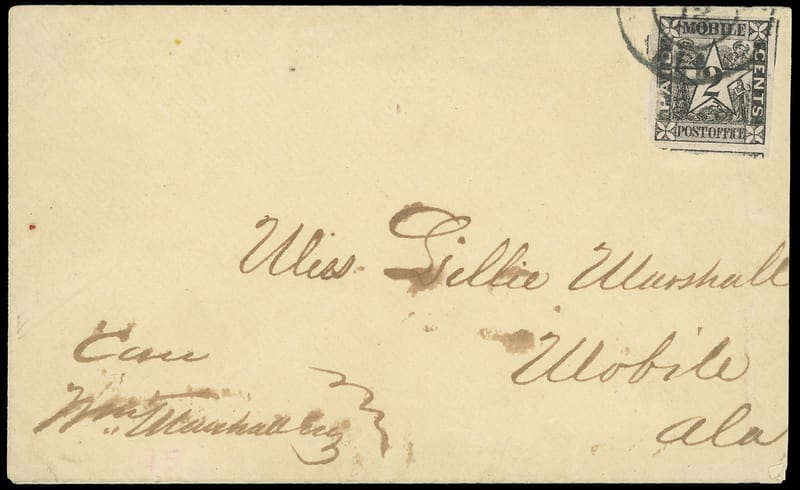 12
MOBILE
PAID
2
CENTS
POST OFFICE
Miss Lillie Marshall
Mobile
Ala
Care
Wm Marshall Esq